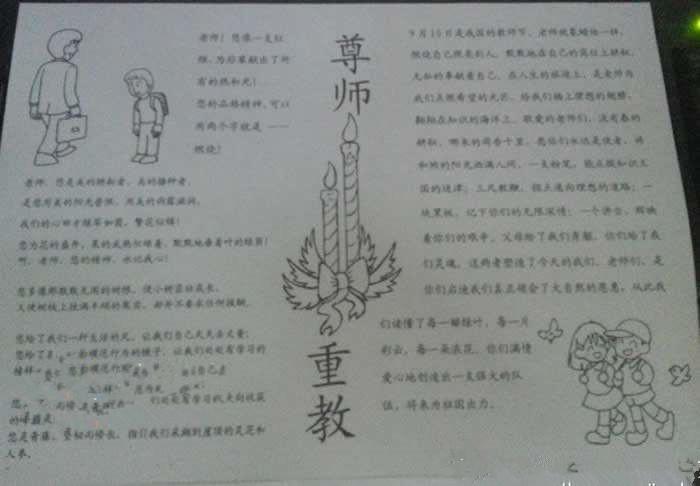 尊师
重教
老师！您像一支红
烛，为后辈献出了所
有的热和光！
您的品格精神，可以
用两个字就是——
燃烧！
老师，您是美的耕耘者，美的播种者。
是您用美的阳光普照，用美的雨露滋润，
我们的心田才绿草如茵，繁花似锦！
您为花的盛开，果的成熟忙碌着，默默地垂着叶的绿荫！
啊，老师，您的精神，永记我心！
您多像那默默无闻的树根，使小树茁壮成长，
又使树枝上挂满丰硕的果实，却并不要求任何报酬。
您给了我们一种生活的尺，让我们自己天天去丈量；
您给了
模范行为的镜子，让我们处处有学习的
榜样
处处有学习的
您是青藤，坚韧而修长，指引我们采撷到崖顶的灵芝和
人参。
9月10日是我国的教师节，老师就象蜡烛一样，
燃烧自己照亮别人，默默地在自己的岗位上耕耘，
无私的奉献着自己，在人生的旅途上，是老师为
我们点燃希望的光芒，给我们插上理想的翅膀，
翱翔在知识的海洋上，敬爱的老师们，没有春的
耕耘，哪来的荷香十里，愿你们永远是使者，将
和煦的阳光洒满人间，一支粉笔，能点拨知识王
国的迷津；三尺教鞭，指点通向理想的道路；一
块黑板，记下你们的无限深情；一个讲台，辉映
着你们的艰辛，父母给了我们身躯，你们给了我
们灵魂，这两者塑造了今天的我们，老师们，是
你们启迪我们真正领会了大自然的恩惠，从此我
们读懂了每一瓣绿叶，每一片
彩云，每一朵浪花，你们满情
爱心地创造出一支强大的队
伍，将来为祖国出力。